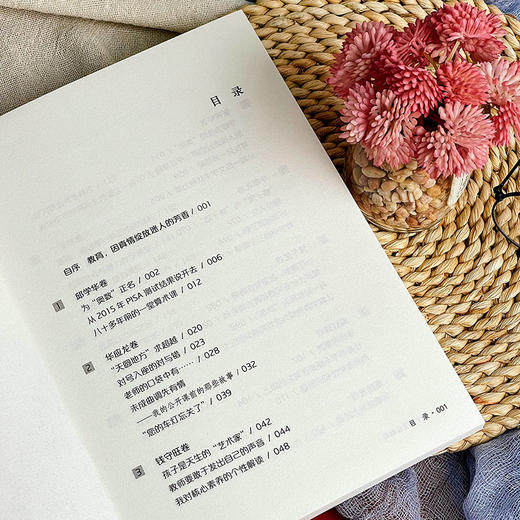 目 录
自序 教育，因真情绽放迷人的芳香 / 001
1 邱学华卷
为“奥数”正名 / 002
从 2015 年 PISA 测试结果说开去 / 006
八十多年前的一堂算术课 / 012
2 华应龙卷
“天圆地方”求超越 / 020
对号入座的对与错 / 023
老师的口袋中有…… / 028
未成曲调先有情
——我的公开课前的那些故事 / 032
“您的车灯忘关了” / 039
3 钱守旺卷
孩子是天生的“艺术家” / 042
教师要敢于发出自己的声音 / 044
我对核心素养的个性解读 / 048
目 录 · 001